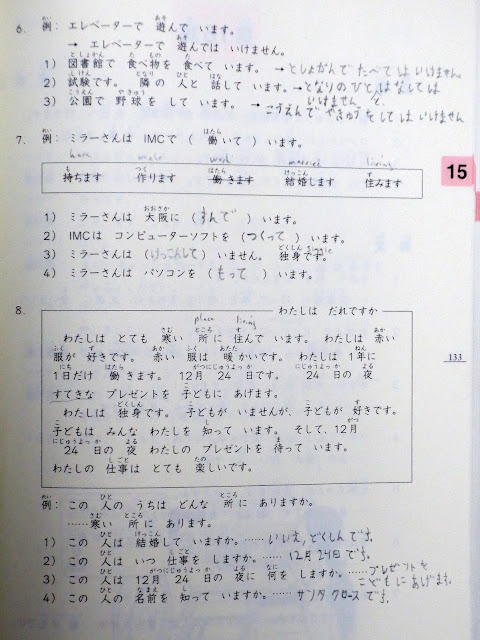 6. 例: エレベーターで 遊んで います。
→ エレベーターで 遊んでは いけません。
1) 図書館で 食べ物を 食べて います。 →としょかんで たべては いけません。
2) 試験です。 隣の 人と 話して います。 →となりの ひと はなしては
いけません。 と
3) 公園で 野球を して います。 → こうえんで やきゅうを しては いけません
7. 例: ミラーさんは IMCで ( 働いて ) います。
have make work married living
持ちます 作ります 働きます 結婚します 住みます
15
1) ミラーさんは 大阪に ( すんで ) います。
2) IMCは コンピューターソフトを ( つくって ) います。
3) ミラーさんは ( けっこんして ) いません。 独身です。 single
4) ミラーさんは パソコンを ( もって ) います。
8. わたしは だれですか
place living
わたしは とても 寒い 所に 住んで います。 わたしは 赤い
服が 好きです。 赤い 服は 暖かいです。 わたしは 1年に
1日だけ 働きます。 12月 24日です。 24日の 夜
すてきな プレゼントを 子どもに あげます。
わたしは 独身です。 子どもが いませんが、子どもが 好きです。
子どもは みんな わたしを 知って います。 そして、12月
24日の 夜 わたしの プレゼントを 待って います。
わたしの 仕事は とても 楽しいです。
133
例: この 人の うちは どんな 所に ありますか。
……寒い 所に あります。
1) この 人は 結婚して いますか。…… いいえ、どくしんです。
2) この 人は いつ 仕事を しますか。…… 12月24日です。
3) この 人は 12月 24日の 夜に 何を しますか。…… プレゼントを
こどもに あげます。
4) この 人の 名前を 知って いますか。…… サンタクロースです。